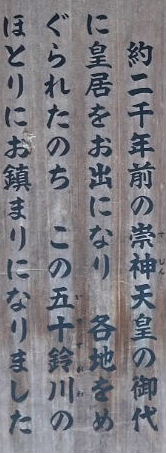 約二千年前の崇神天皇の御代
に皇居をお出になり　各地をめ
ぐられたのち　この五十鈴川の
ほとりにお鎮まりになりました